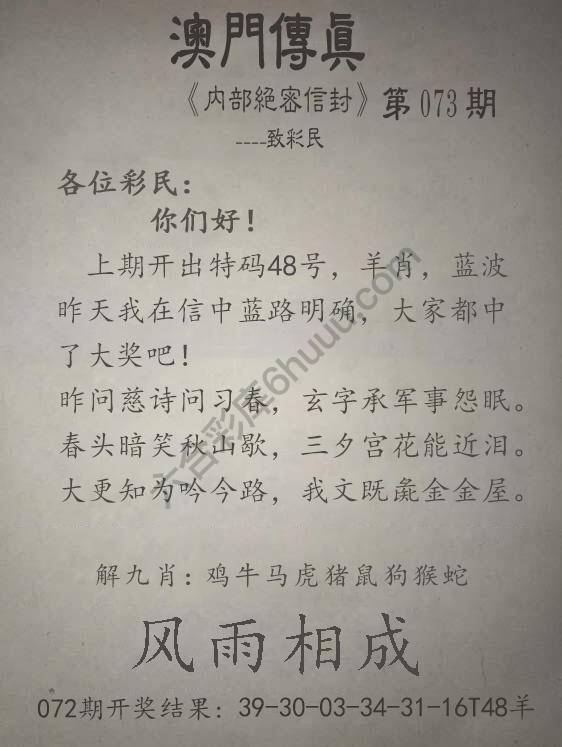 澳門傳眞
《内部絕密信封》第073期
----致彩民
各位彩民：
你们好！
上期开出特码48号，羊肖，蓝波
昨天我在信中蓝路明确，大家都中
了大奖吧！
昨问慈诗问习春，玄字承军事怨眠。
春头暗笑秋山歇，三夕宫花能近泪。
大更知为吟今路，我文既彘金金屋。
解九肖：鸡牛马虎猪鼠狗猴蛇
风雨相成
072期开奖结果：39-30-03-34-31-16T48羊
六合彩库6huuu.com